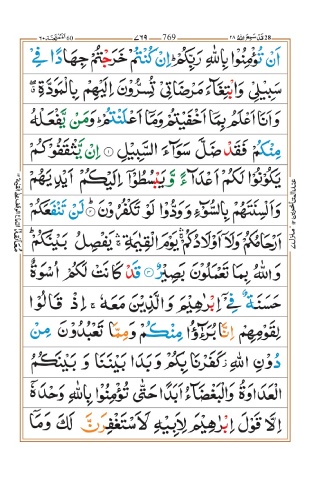 28 قد سمع الله ٢٨ 769 ٧٦٩ 60 الممتحنة ٦٠
اَنْ تُؤْمِنُوْا بِاللّٰهِ رَبِّكُمْ ؕ اِنْ كُنْتُمْ خَرَجْتُمْ جِهَادًا فِیْ
سَبِیْلِیْ وَابْتِغَآءَ مَرْضَاتِیْ تُسِرُّوْنَ اِلَیْهِمْ بِالْمَوَدَّةِ ۖۗ
وَاَنَا اَعْلَمُ بِمَاۤ اَخْفَیْتُمْ وَمَاۤ اَعْلَنْتُمْ ؕ وَمَنْ یَّفْعَلْهُ
مِنْكُمْ فَقَدْ ضَلَّ سَوَآءَ السَّبِیْلِ ۝ اِنْ یَّثْقَفُوْكُمْ
یَكُوْنُوْا لَكُمْ اَعْدَآءً وَّیَبْسُطُوْۤا اِلَیْكُمْ اَیْدِیَهُمْ
وَاَلْسِنَتَهُمْ بِالسُّوْٓءِ وَوَدُّوْا لَوْ تَكْفُرُوْنَ ۝ لَنْ تَنْفَعَكُمْ
اَرْحَامُكُمْ وَلَاۤ اَوْلَادُكُمْ ۛۚ یَوْمَ الْقِیٰمَةِ ۛۚ یَفْصِلُ بَیْنَكُمْ ؕ
وَاللّٰهُ بِمَا تَعْمَلُوْنَ بَصِیْرٌ ۝ قَدْ كَانَتْ لَكُمْ اُسْوَةٌ
حَسَنَةٌ فِیْۤ اِبْرٰهِیْمَ وَالَّذِیْنَ مَعَهٗ ۚ اِذْ قَالُوْا
لِقَوْمِهِمْ اِنَّا بُرَءٰٓؤُا مِنْكُمْ وَمِمَّا تَعْبُدُوْنَ مِنْ
دُوْنِ اللّٰهِ ؗ كَفَرْنَا بِكُمْ وَبَدَا بَیْنَنَا وَبَیْنَكُمُ
الْعَدَاوَةُ وَالْبَغْضَآءُ اَبَدًا حَتّٰی تُؤْمِنُوْا بِاللّٰهِ وَحْدَهٗۤ
اِلَّا قَوْلَ اِبْرٰهِیْمَ لِاَبِیْهِ لَاَسْتَغْفِرَنَّ لَكَ وَمَاۤ